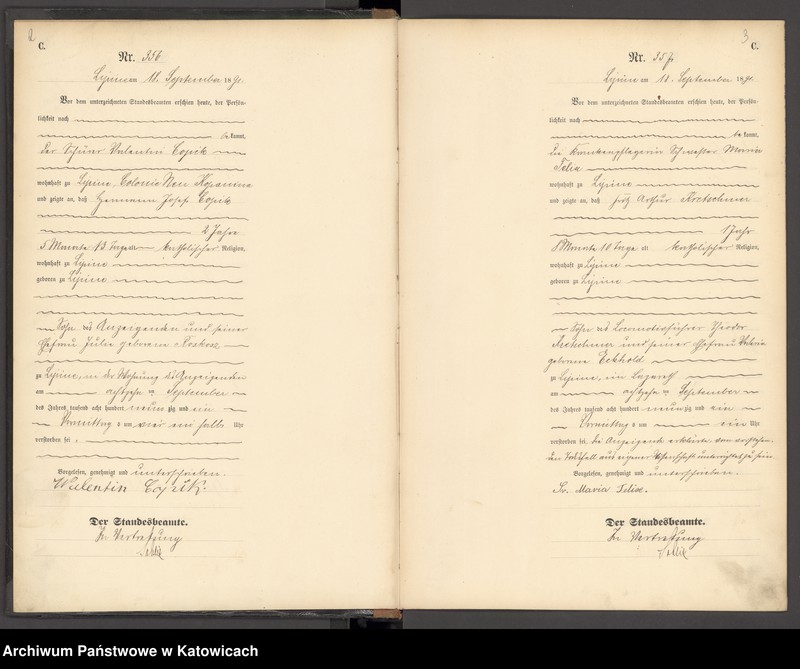 2
C.
Nr. 356
Lipine am 11. September 1891.
Vor dem unterzeichneten Standesbeamten erschien heute, der Persön-
lichkeit nach
bekannt,
der Valentin Copik
wohnhaft zu Lipine Colonie Neu Kopanina
und zeigte an, daß Hermann Josef Copik
2 Jahre
5 Monate 13 Tage alt katholischer Religion,
wohnhaft zu Lipine
geboren zu Lipine
Sohn des Anzeigenden und seiner
Ehefrau Julie geborene
zu Lipine, in der Wohnung des Anzeigenden
am September
des Jahres tausend acht hundert neunzig und ein
Vormittags um vier ein halb Uhr
verstorben sei.
Vorgelesen, genehmigt und unterschrieben.
Walentin Copik.
Der Standesbeamte.
In Vertretung
3
C.
Nr. 357.
Lipine am 11. September 1891.
Vor dem unterzeichneten Standesbeamten erschien heute, der Persön-
lichkeit nach
bekannt,
die Krankenpflegerin Schwester Maria
wohnhaft zu Lipine
und zeigte an, daß Fritz Arthur Kretschmer
1 Jahr
8 Monate 10 Tage alt katholischer Religion,
wohnhaft zu Lipine
geboren zu Lipine
Sohn des Locomotivführer Theodor
Kretschmer und seiner Ehefrau Valeria
geborene Eckhold
zu Lipine, im Lazareth
am September
des Jahres tausend acht hundert neunzig und ein
Vormittags um ein Uhr
verstorben sei, die Anzeigende erklärte, von vorstehen-
den Todesfall aus eigener Wissenschaft unterrichtet zu sein.
Vorgelesen, genehmigt und unterschrieben.
Sr. Maria
Der Standesbeamte.
In Vertretung
Archiwum Państwowe w Katowicach